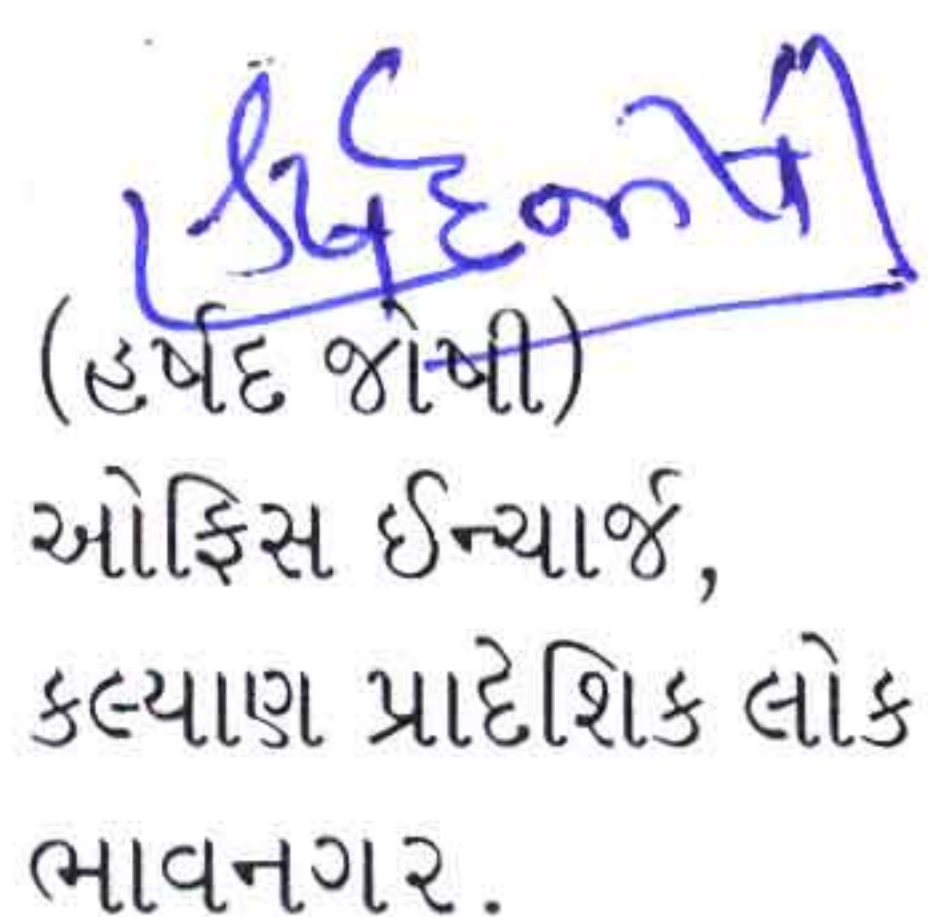 (હર્ષદ જોષી)
ઓફિસ ઈન્ચાર્જ,
કલ્યાણ પ્રાદેશિક લોક
ભાવનગર.